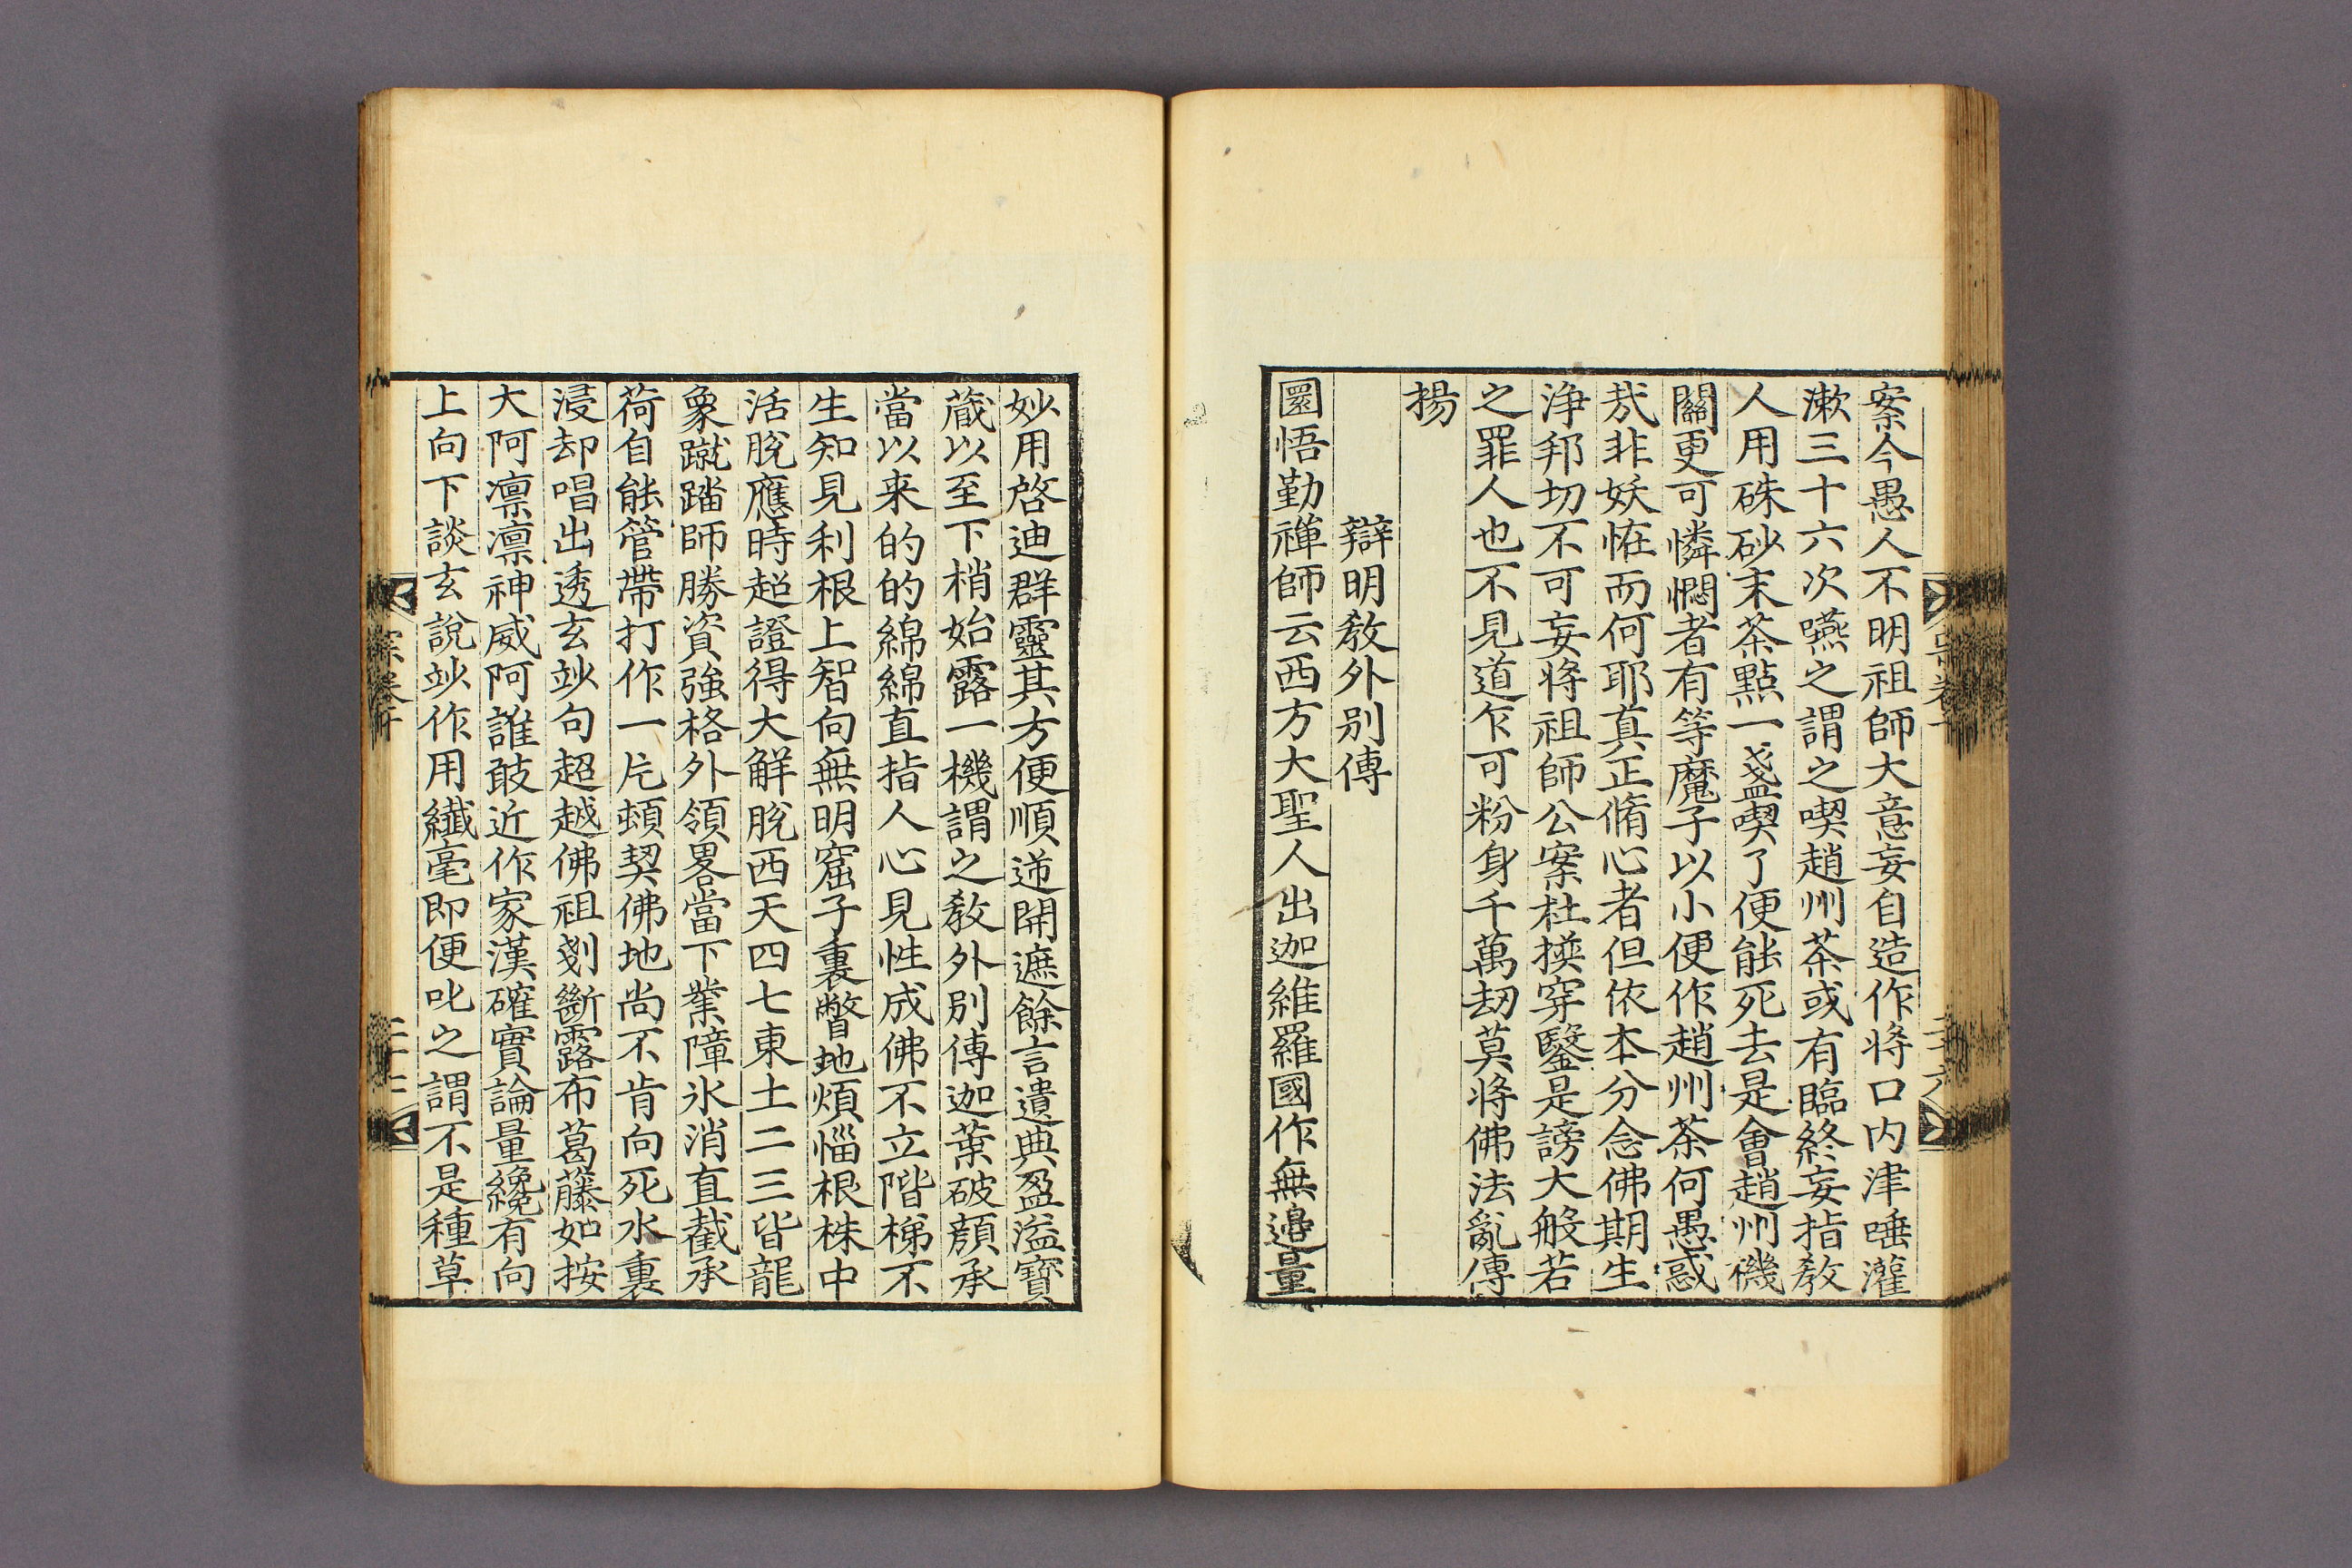 案今愚人不明祖師大意妄自造作将口内津唾灌
漱三十六次嚥之謂之喫趙州茶或有臨終妄指教
人用硃砂末茶點一盞喫了便能死去是會趙州機
關更可憐憫者有等魔子以小便作趙州茶何愚惑
㢤非妖恠而何耶真正脩心者但依本分念佛期生
浄邦切不可妄将祖師公案杜撰穿鑿是謗大般若
之罪人也不見道乍可粉身千萬刼莫将佛法亂傳
揚
辯明教外别傳
圜悟勤禅師云西方大聖人出迦維羅國作無邊量
妙用啓迪群靈其方便順逆開遮餘言遺典盈溢寶
蔵以至下梢始露一機謂之教外别傳迦葉破顔承
當以来的的綿綿直指人心見性成佛不立階梯不
生知見利根上智向無明窟子裏瞥地煩惱根株中
活脫應時超證得大解脫西天四七東土二三皆龍
象蹴踏師勝資強格外領畧當下業障氷消直截承
荷自能管帶打作一片頓契佛地尚不肯向死水裏
浸却唱出透玄妙句超越佛祖剗斷露布葛藤如按
大阿凛凛神威阿誰敢近作家漢確實論量纔有向
上向下談玄說妙作用纎毫即便叱之謂不是種草